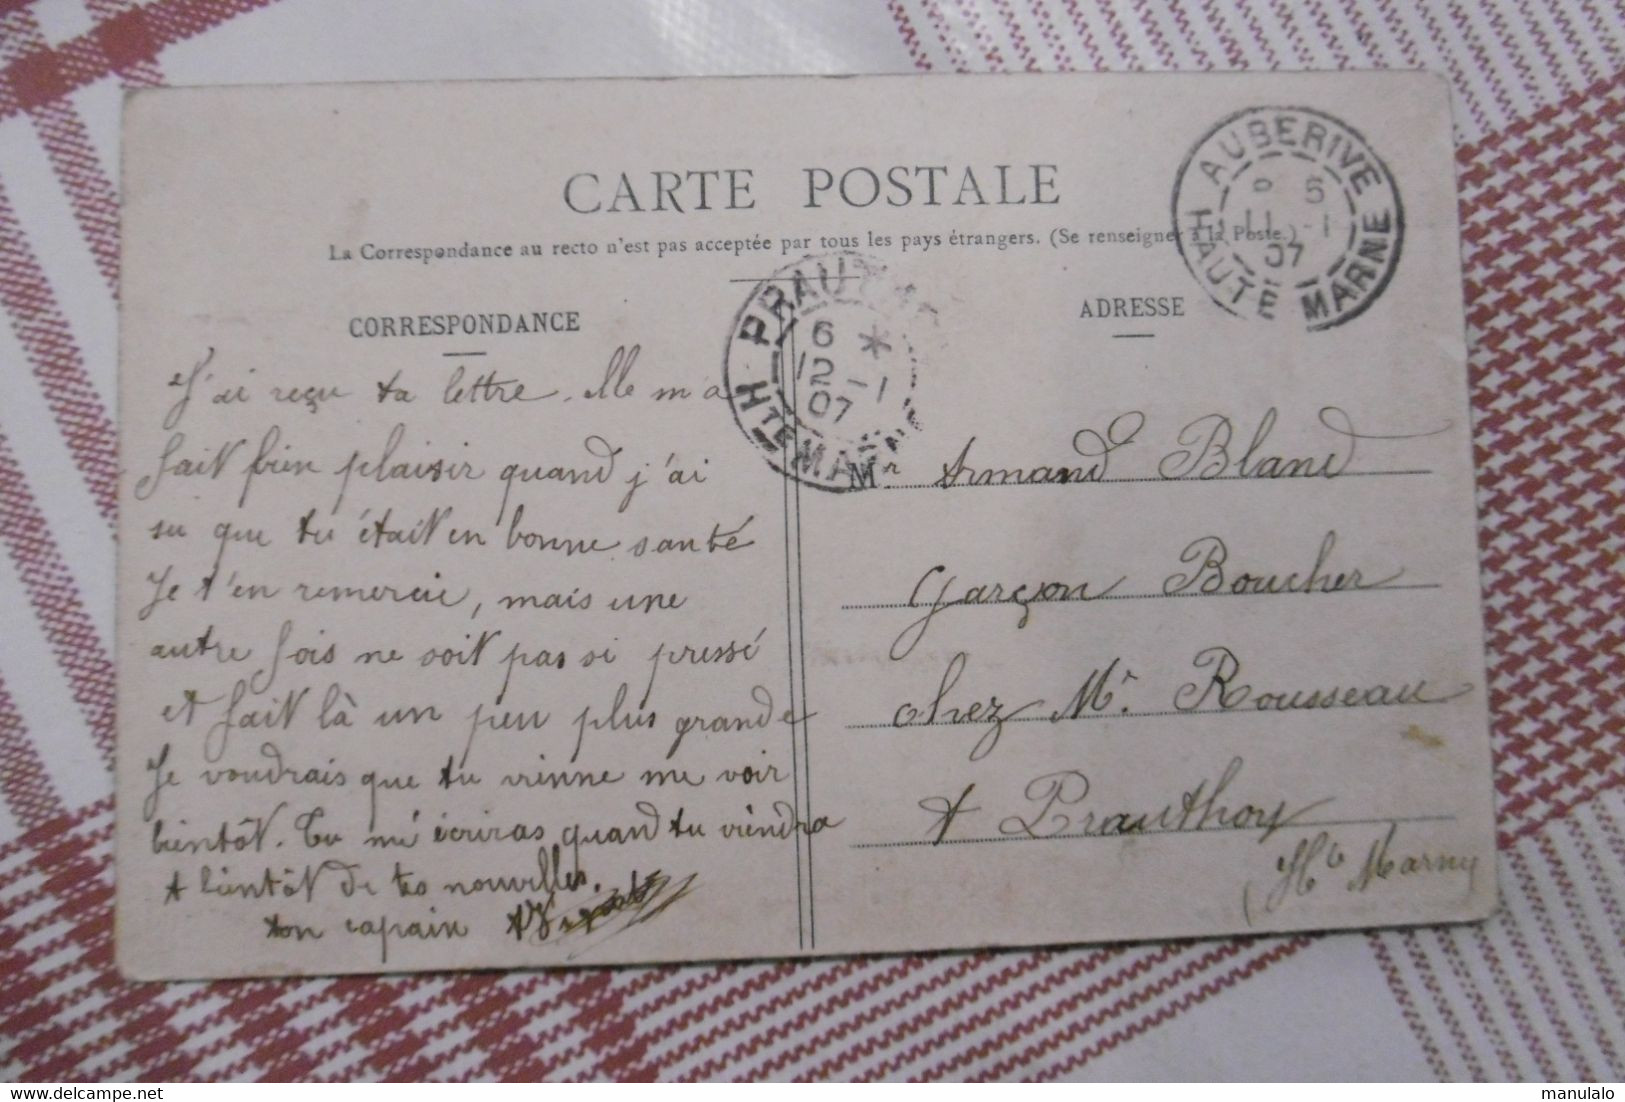 CARTE POSTALE
La Correspondance au recto n'est pas acceptée par tous les pays étrangers. (Se renseigner à la Poste.)
CORRESPONDANCE
ADRESSE
AUBERIVE
HAUTE MARNE
6
11 -1
07
PRAUTHOY
Hte MARNE
6 *
12 -1
07
J'ai reçu ta lettre. elle m'a
fait bien plaisir quand j'ai
su que tu était en bonne santé
Je t'en remercie, mais une
autre fois ne soit pas si pressé
et fait là un peu plus grande
Je voudrais que tu vienne me voir
bientôt. Tu m'écriras quand tu viendra
A bientôt de tes nouvelles.
ton copain
Mr Armand Bland
garçon Boucher
chez Mr. Rousseau
A Prauthoy
(Hte Marne
manulalo